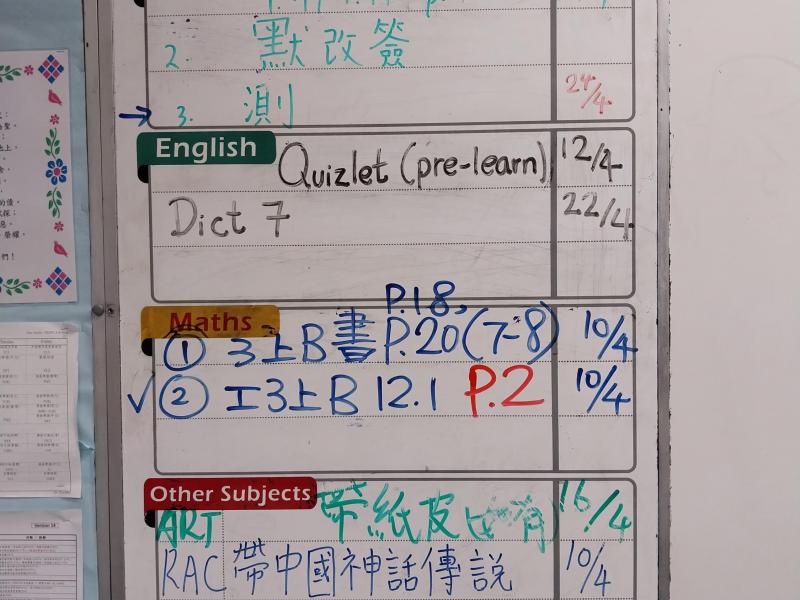 2. 默改簽
→ 3. 測 24/4
English
Quizlet (pre-learn) 12/4
Dict 7 22/4
Maths
P.18,
① 3上B書 P.20 (7-8) 10/4
✓ ② 工3上B 12.1 P.2 10/4
Other Subjects
ART 帶紙皮 16/4
RAC 帶中國神話傳説 10/4